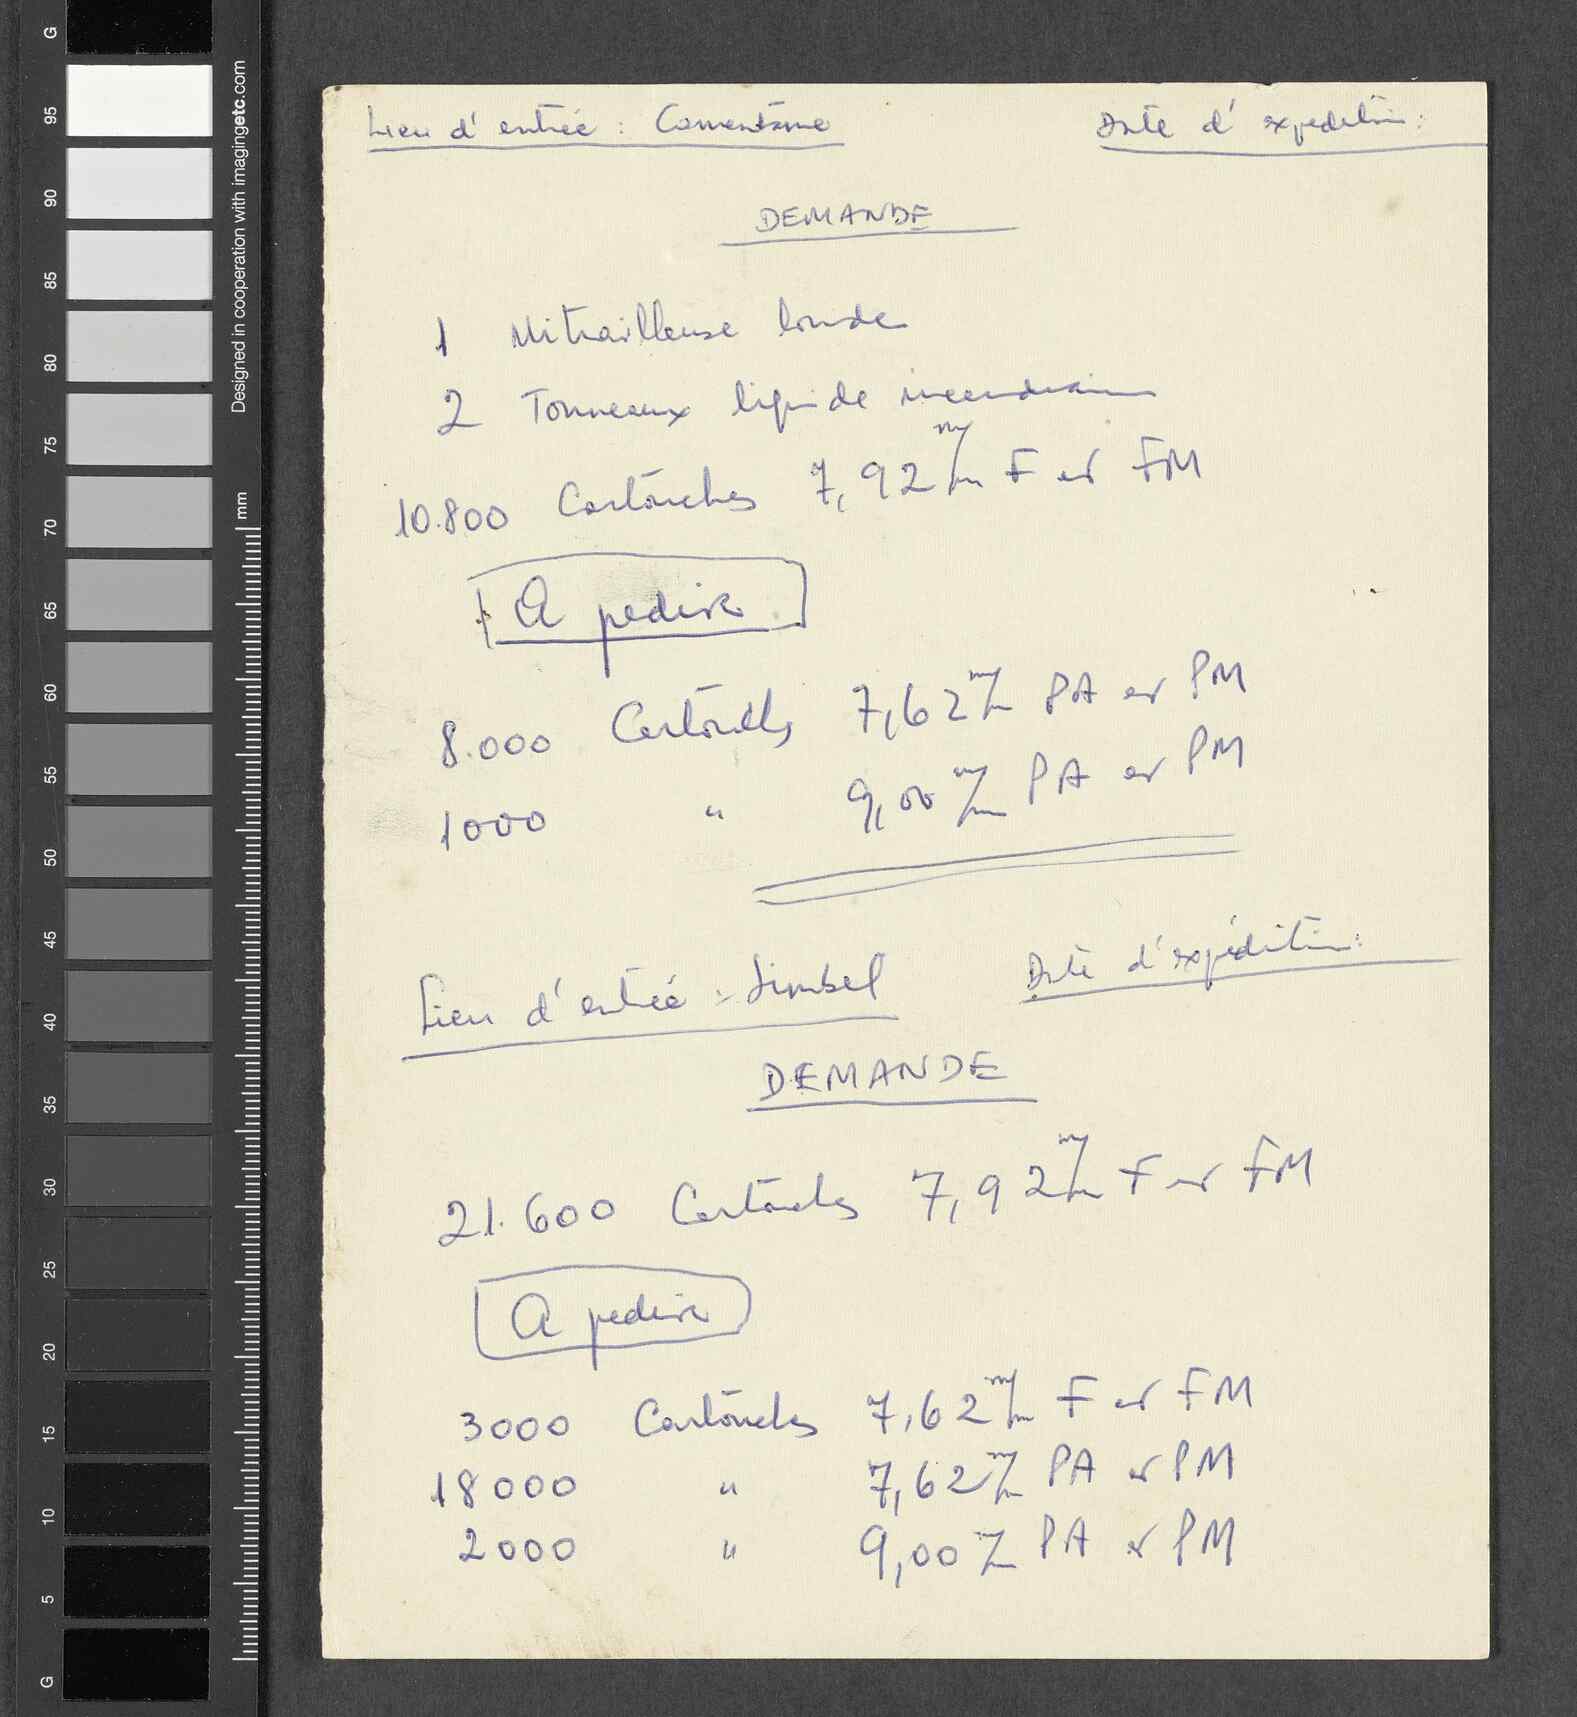 Lieu d'entrée : Camentäme
Date d'expedition :
DEMANDE
1 Mitrailleuse lourde
2 Tonneaux liquide incendiaire
10.800 Cartouches 7,92 m/m F et FM
A pedire
8.000 Cartouches 7,62 m/m PA et PM
1000 " 9,00 m/m PA et PM
Lieu d'entrée : Simbel
Date d'expédition :
DEMANDE
21.600 Cartouches 7,92 m/m F et FM
A pedire
3000 Cartouches 7,62 m/m F et FM
18000 " 7,62 m/m PA et PM
2000 " 9,00 m/m PA et PM
G
95
90
85
80
75
70
65
60
55
50
45
40
35
30
25
20
15
10
5
G
Designed in cooperation with imagingetc.com
mm